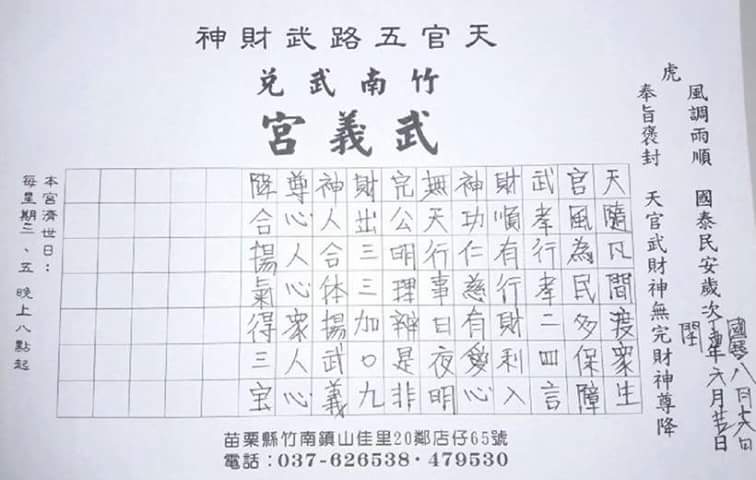 天官五路武財神
竹南武兌
武義宮
國曆八月十六日
風調雨順 國泰民安歲次丁酉年閏六月廿日
虎
奉旨褒封 天官武財神無完財神尊降
天隨凡間渡眾生
官風為民多保障
武孝行孝二四言
財順有行財利入
神功仁慈有愛心
無天行事日夜明
完公明理辨是非
財出三三加口九
神人合体揚武義
尊心人心眾人心
降合揚氣得三宝
本宮濟世日：
每星期二、五 晚上八點起
苗栗縣竹南鎮山佳里20鄰店仔65號
電話：037-626538・479530